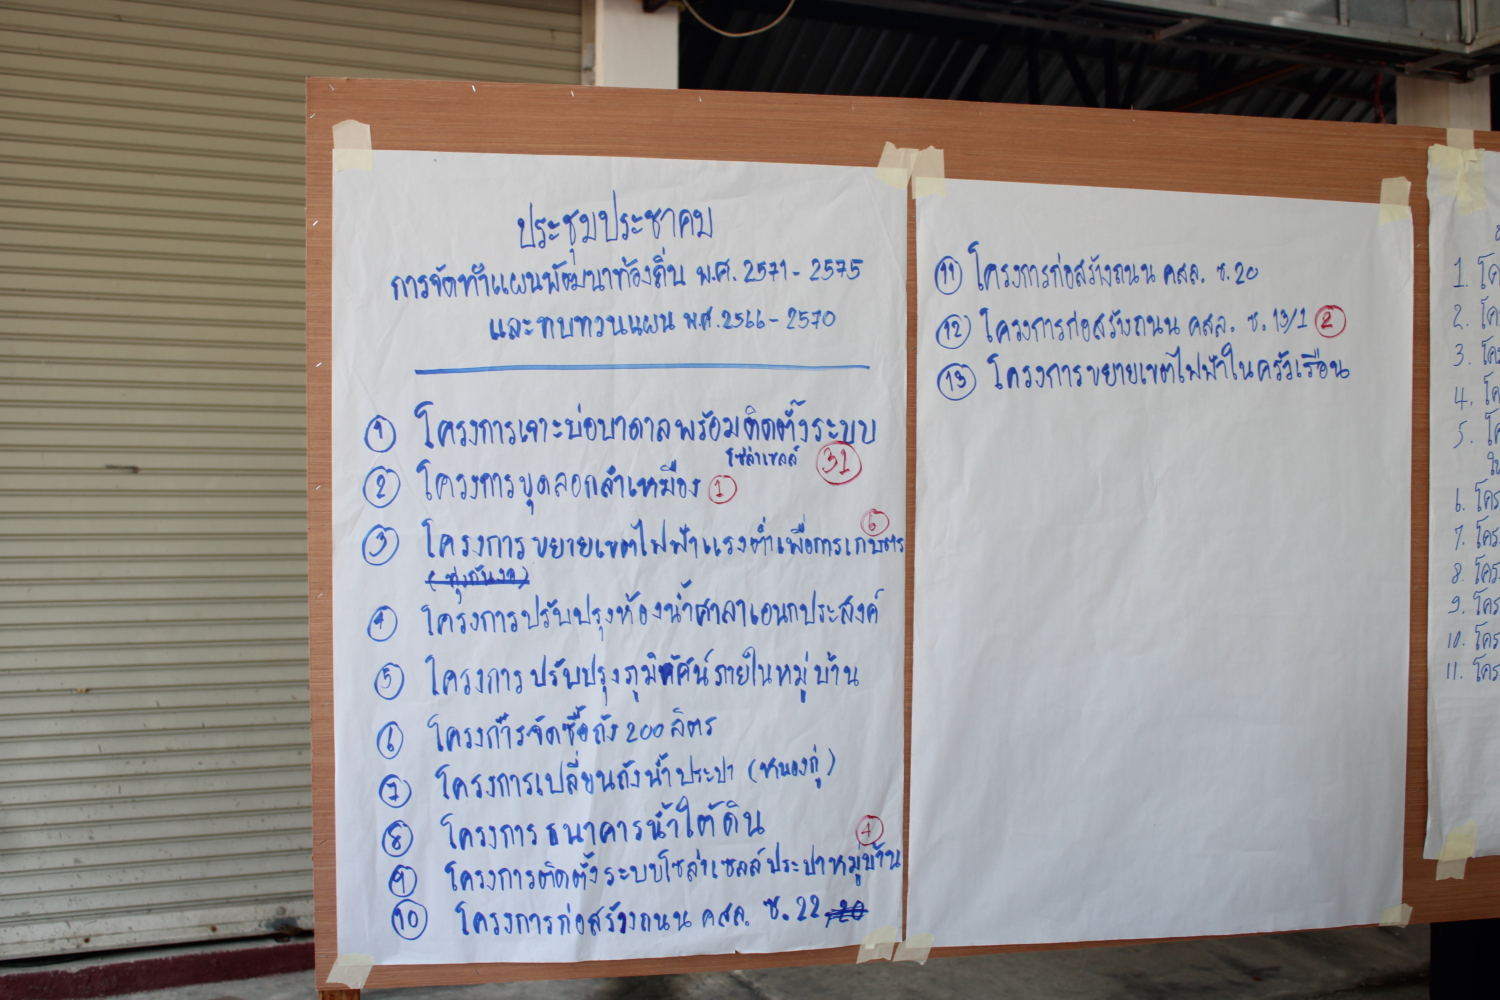 ประชุมประชาคม
การจัดทำแผนพัฒนาท้องถิ่น พ.ศ. 2571 - 2575
และทบทวนแผน พ.ศ. 2566 - 2570
① โครงการเจาะบ่อบาดาลพร้อมติดตั้งระบบ
โซล่าเซลล์ 31
② โครงการขุดลอกลำเหมือง 1
6
③ โครงการขยายเขตไฟฟ้าแรงต่ำเพื่อการเกษตร
④ โครงการปรับปรุงห้องน้ำศาลาเอนกประสงค์
⑤ โครงการปรับปรุงภูมิทัศน์ภายในหมู่บ้าน
⑥ โครงการจัดซื้อถัง 200 ลิตร
⑦ โครงการเปลี่ยนถังน้ำประปา (หนองกู่)
⑧ โครงการธนาคารน้ำใต้ดิน
4
⑨ โครงการติดตั้งระบบโซล่าเซลล์ประปาหมู่บ้าน
⑩ โครงการก่อสร้างถนน คสล. ซ. 22
⑪ โครงการก่อสร้างถนน คสล. ซ. 20
⑫ โครงการก่อสร้างถนน คสล. ซ. 13/1 2
⑬ โครงการขยายเขตไฟฟ้าในครัวเรือน
1. โค
2. โค
3. โค
4. โค
5. โค
ใน
6. โคร
7. โคร
8. โคร
9. โคร
10. โคร
11. โคร